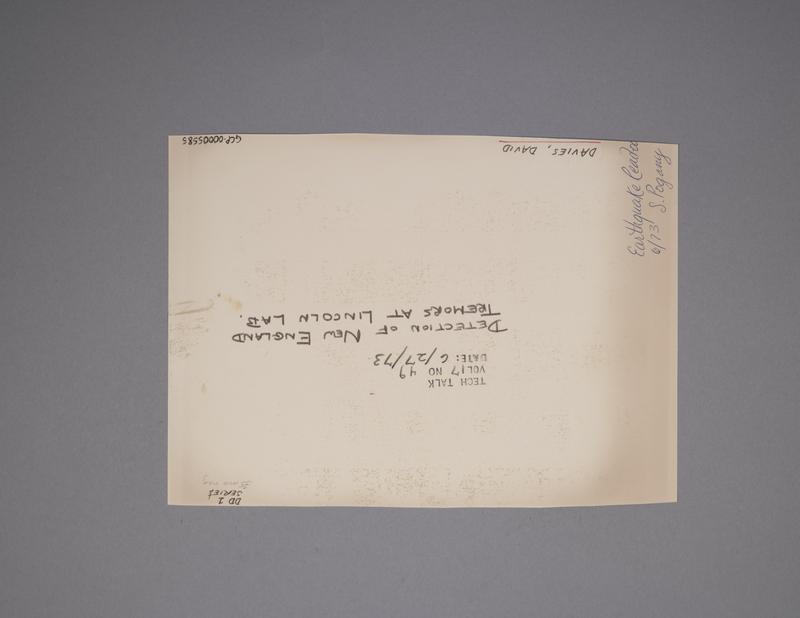 DD 1
SERIES
TECH TALK
VOL 17 NO 49
DATE: 6/27/73
DETECTION OF NEW ENGLAND
TREMORS AT LINCOLN LAB.
DAVIES, DAVID
GCP-00005585
Earthquake Center
6/73 S. Pogany